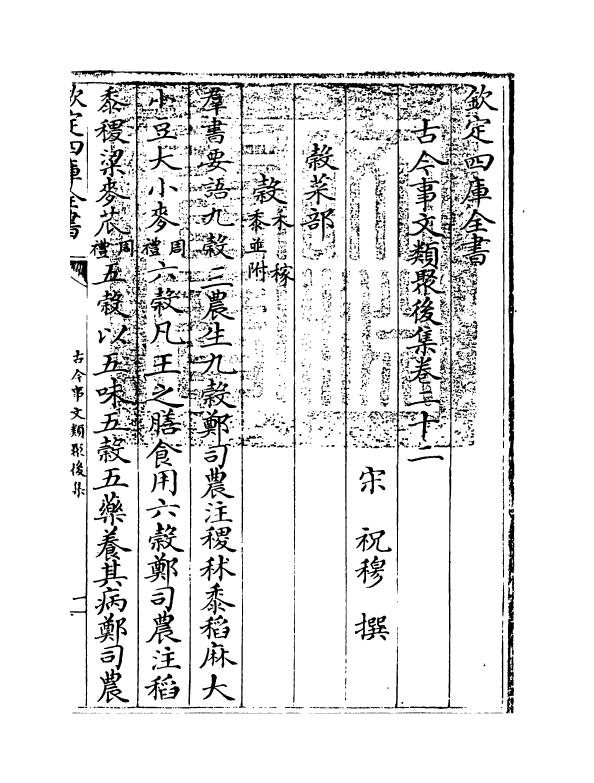 欽定四庫全書
古今事文類聚後集卷二十二
宋 祝穆 撰
穀菜部
穀禾稼黍並附
羣書要語九穀三農生九穀鄭司農注稷秫黍稻麻大
小豆大小麥周禮六穀凡王之膳食用六穀鄭司農注稻
黍稷梁麥苽周禮五穀以五味五穀五藥養其病鄭司農
欽定四庫全書
古今事文類聚後集
一